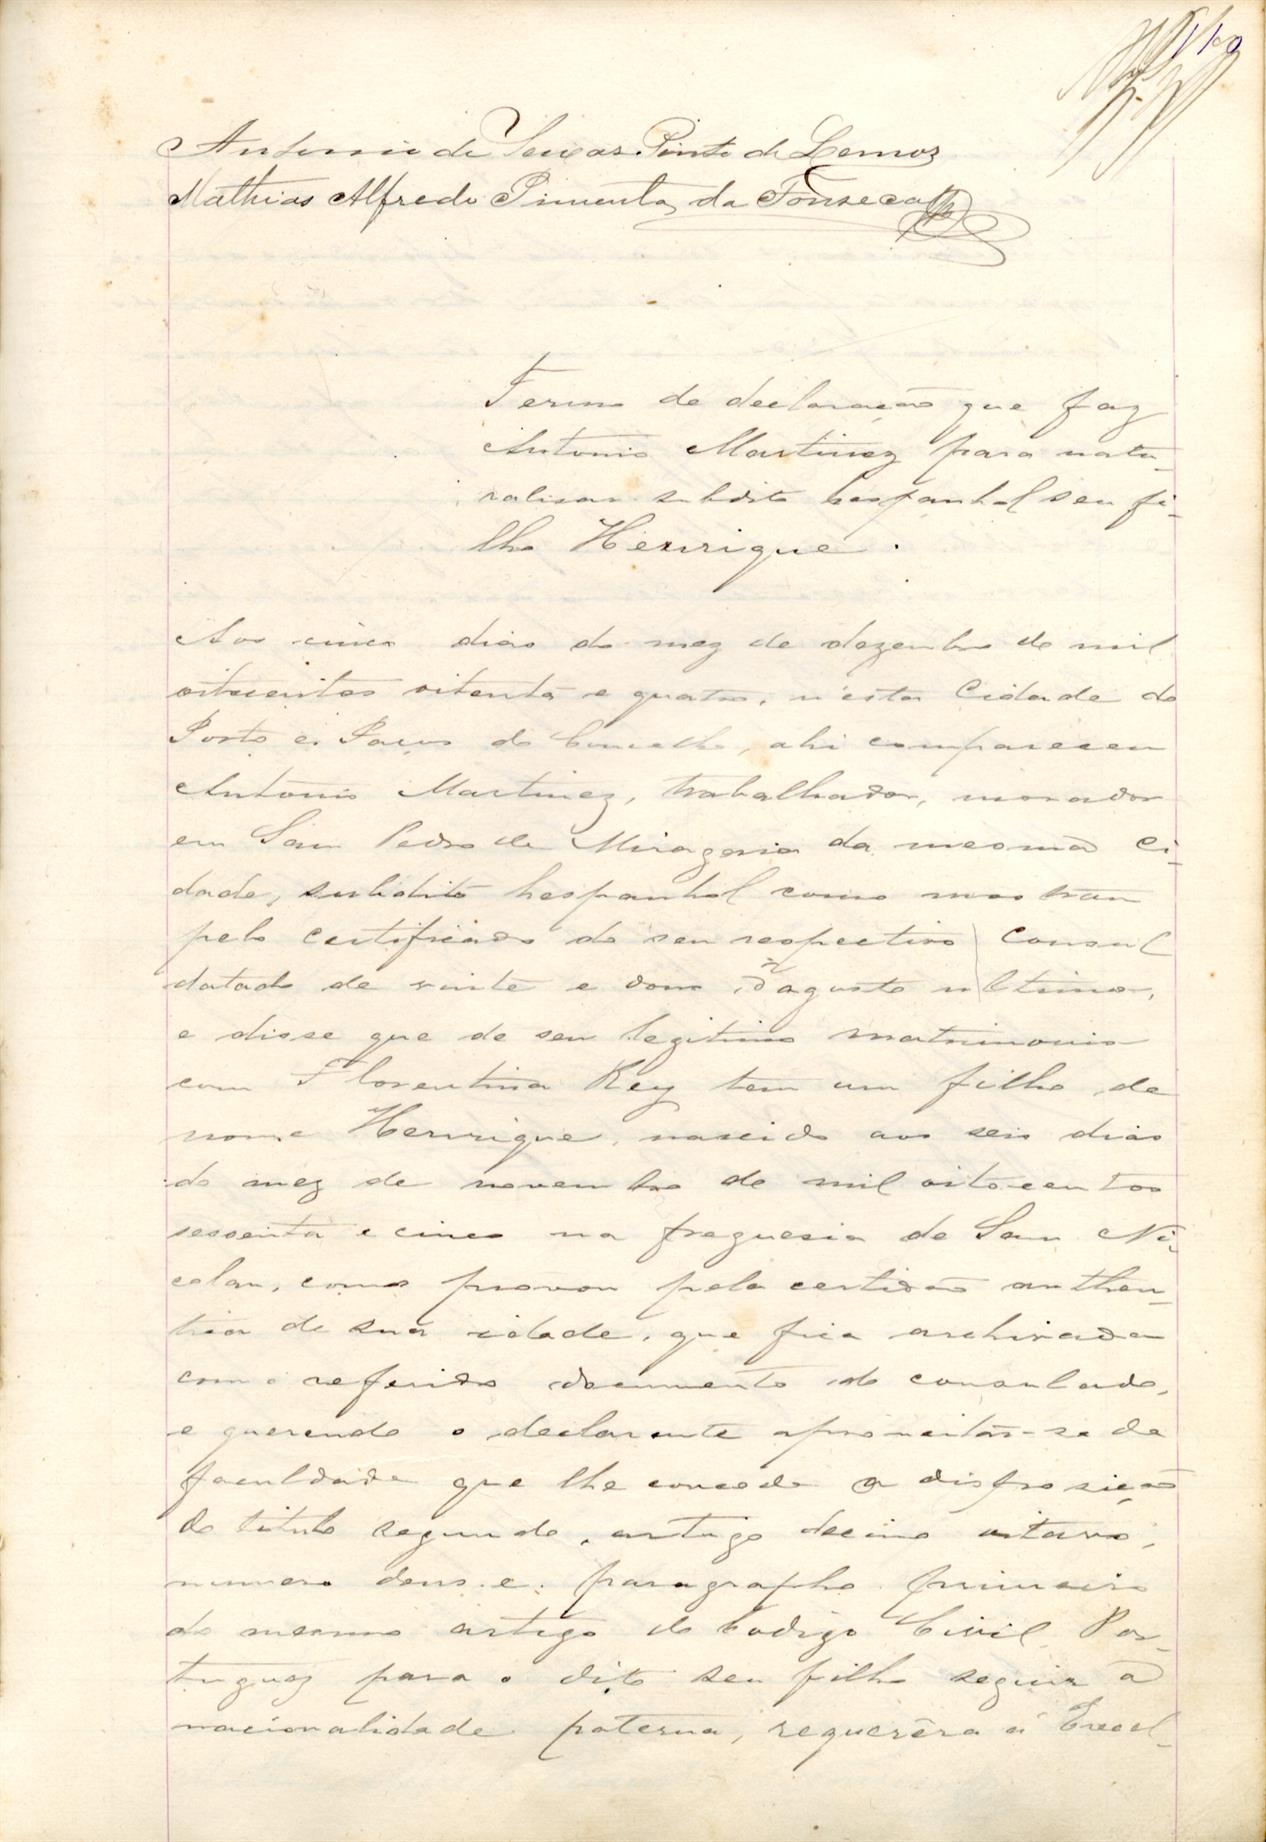 Antonio de Seixas Pinto de Lemos
Mathias Alfredo Pimenta da Fonseca
Termo de declaração que faz
Antonio Martinez para natu-
ralisar subdito hespanhol seu fi-
lho Henrique.
Aos cinco dias do mez de dezembro de mil
oitocentos oitenta e quatro, n'esta Cidade do
Porto e Paços do Concelho, ahi compareceu
Antonio Martinez, trabalhador, morador
em Sam Pedro de Miragaia da mesma Ci-
dade, subdito hespanhol como mostrou
pelo certificado do seu respectivo Consul
datado de vinte e dous d'agosto ultimo,
e disse que de seu legitimo matrimonio
com Florentina Rey tem um filho de
nome Henrique, nascido aos seis dias
do mez de novembro de mil oitocentos
sessenta e cinco na freguesia de Sam Ni-
colau, como provou pela certidão authen-
tica de sua idade, que fica archivada
com o referido documento do consulado,
e querendo o declarante aproveitar-se da
faculdade que lhe concede a disposição
do titulo segundo, artigo decimo oitavo,
numero dous e paragrapho primeiro
do mesmo artigo do Codigo Civil Por-
tuguez para o dito seu filho seguir a
nacionalidade paterna, requerêra á Excel-